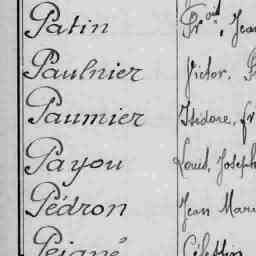 Patin Pr ont, Jean
Paulnier Victor, P
Paumier Isidore, fr
Payou Louis, Joseph
Pédron Jean Mari
Peigné Célestin